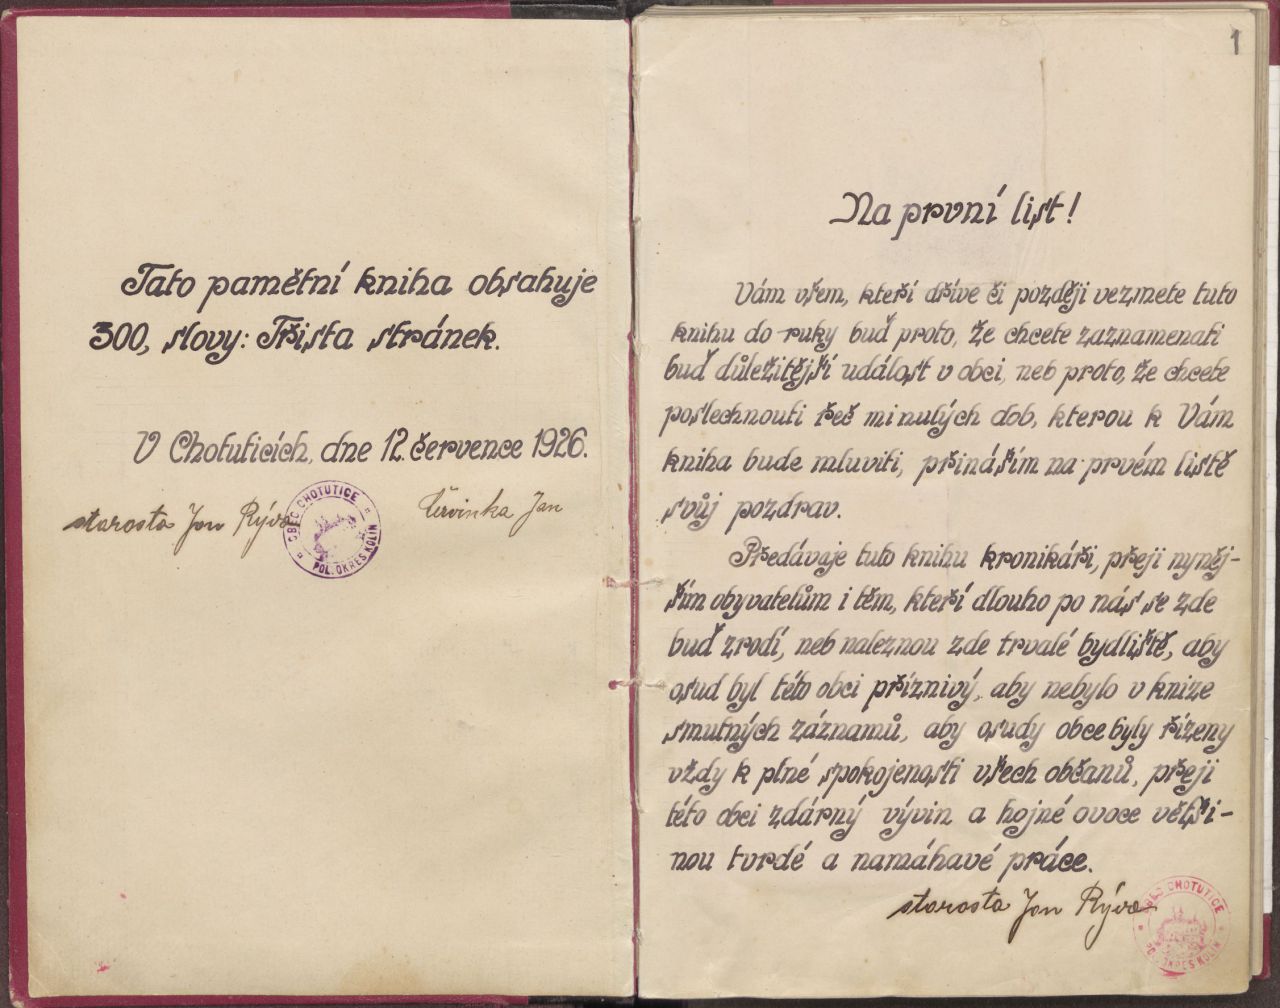 Tato pamětní kniha obsahuje
300, slovy: Třista stránek.
V Chotuticích, dne 12. července 1926.
starosta Jan Rýva
Červinka Jan
OBEC CHOTUTICE
POL. OKRES KOLÍN
1
Na první list!
Vám všem, kteří dříve či později vezmete tuto
knihu do ruky buď proto, že chcete zaznamenati
buď důležitější událost v obci, neb proto, že chcete
poslechnouti řeč minulých dob, kterou k Vám
kniha bude mluviti, přináším na prvém listě
svůj pozdrav.
Předávaje tuto knihu kronikáři, přeji nyněj-
ším obyvatelům i těm, kteří dlouho po nás se zde
buď zrodí, neb naleznou zde trvalé bydliště, aby
osud byl této obci příznivý, aby nebylo v knize
smutných záznamů, aby osudy obce byly řízeny
vždy k plné spokojenosti všech občanů, přeji
této obci zdárný vývin a hojné ovoce větši-
nou tvrdé a namáhavé práce.
starosta Jan Rýva
OBEC CHOTUTICE
POL. OKRES KOLÍN